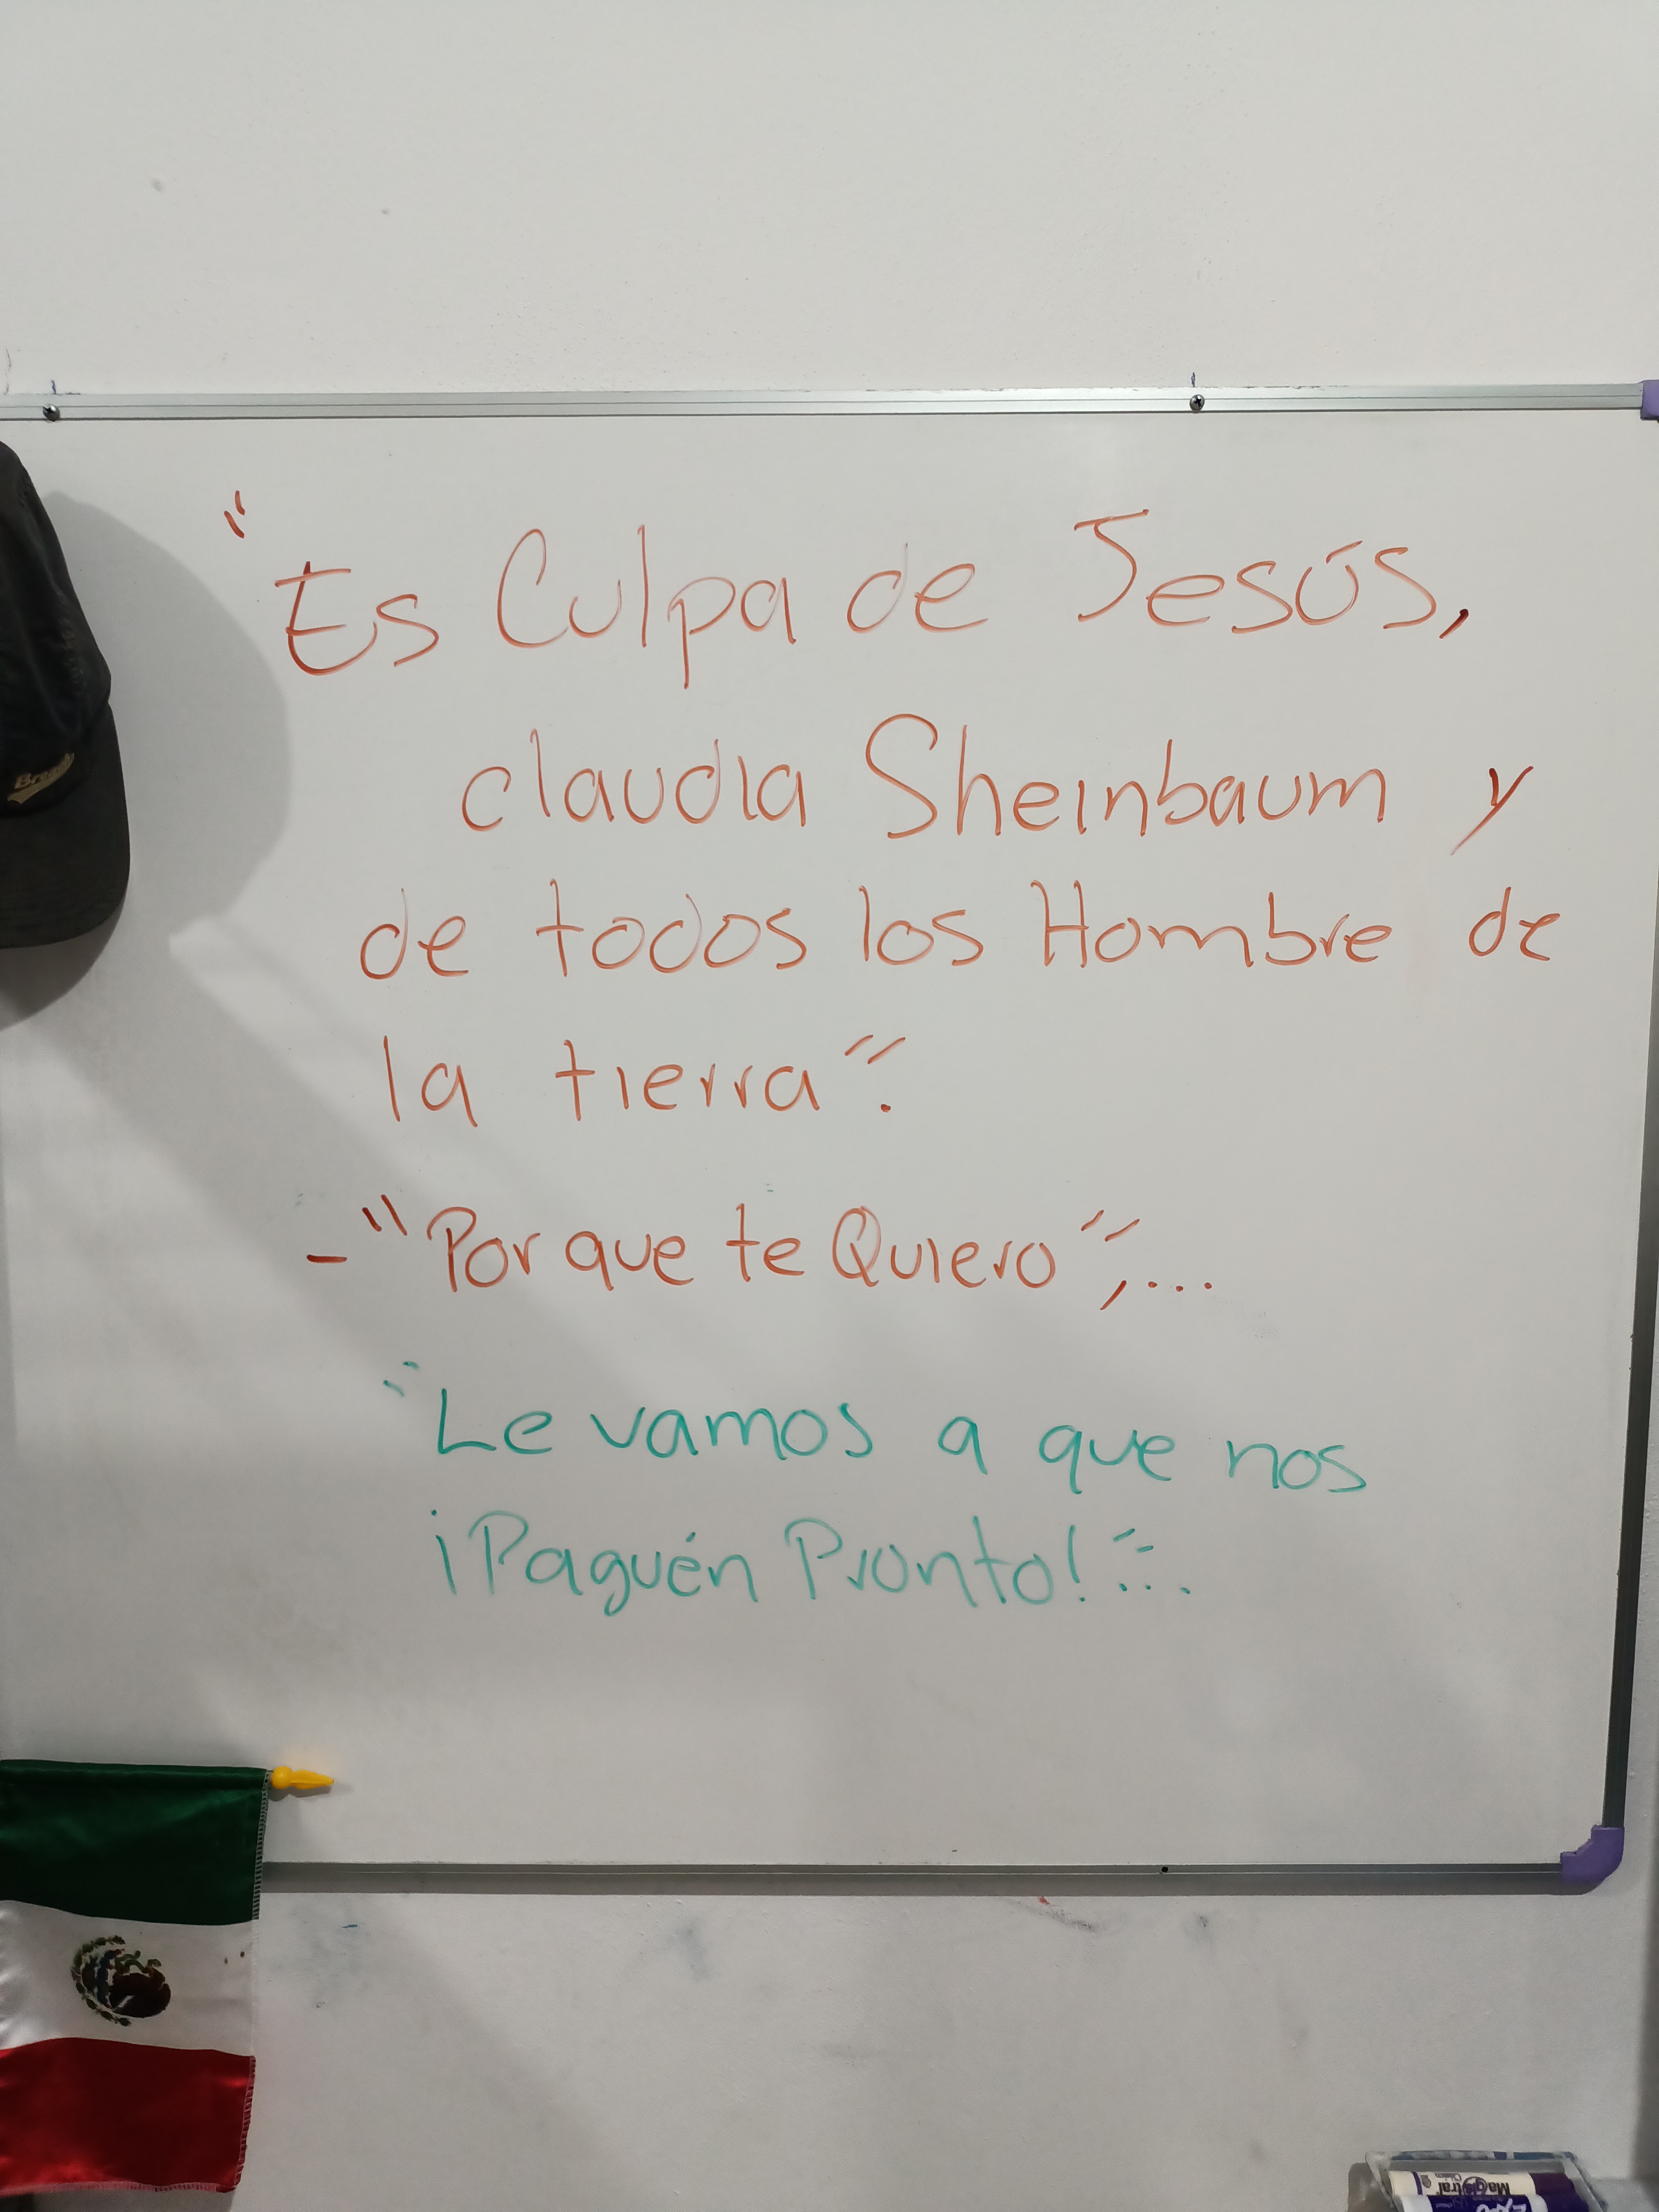 "Es Culpa de Jesús,
claudia Sheinbaum y
de todos los Hombre de
la tierra".
-"Por que te Quiero",...
"Le vamos a que nos
¡Paguén Pronto!"...
Magistral